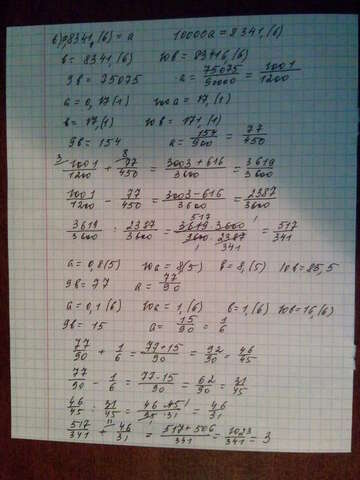 в) 0,8341,(6) = a   10000a = 8341,(6)
b = 8341,(6)   10b = 83416,(6)
9b = 75075   a = 75075/90000 = 1001/1200
a = 0,17(1)   100a = 17,(1)
b = 17,(1)   10b = 171,(1)
9b = 154   a = 154/900 = 77/450
3 1001/1200 + 8 77/450 = 3003 + 616/3600 = 3619/3600
1001/1200 - 77/450 = 3003 - 616/3600 = 2387/3600
3619/3600 : 2387/3600 = 517 3619 · 3600 1/1 3600 · 2387 341 = 517/341
a = 0,8(5)   10a = 8(5)   b = 8,(5)   10b = 85,5
9b = 77   a = 77/90
a = 0,1(6)   10a = 1,(6)   b = 1,(6)   10b = 16,(6)
9b = 15   a = 15/90 = 1/6
77/90 + 1/6 = 77 + 15/90 = 92/90 = 46/45
77/90 - 1/6 = 77 - 15/90 = 62/90 = 31/45
46/45 : 31/45 = 46 · 45 1/45 · 31 = 46/31
517/341 + 11 46/31 = 517 + 506/341 = 1023/341 = 3